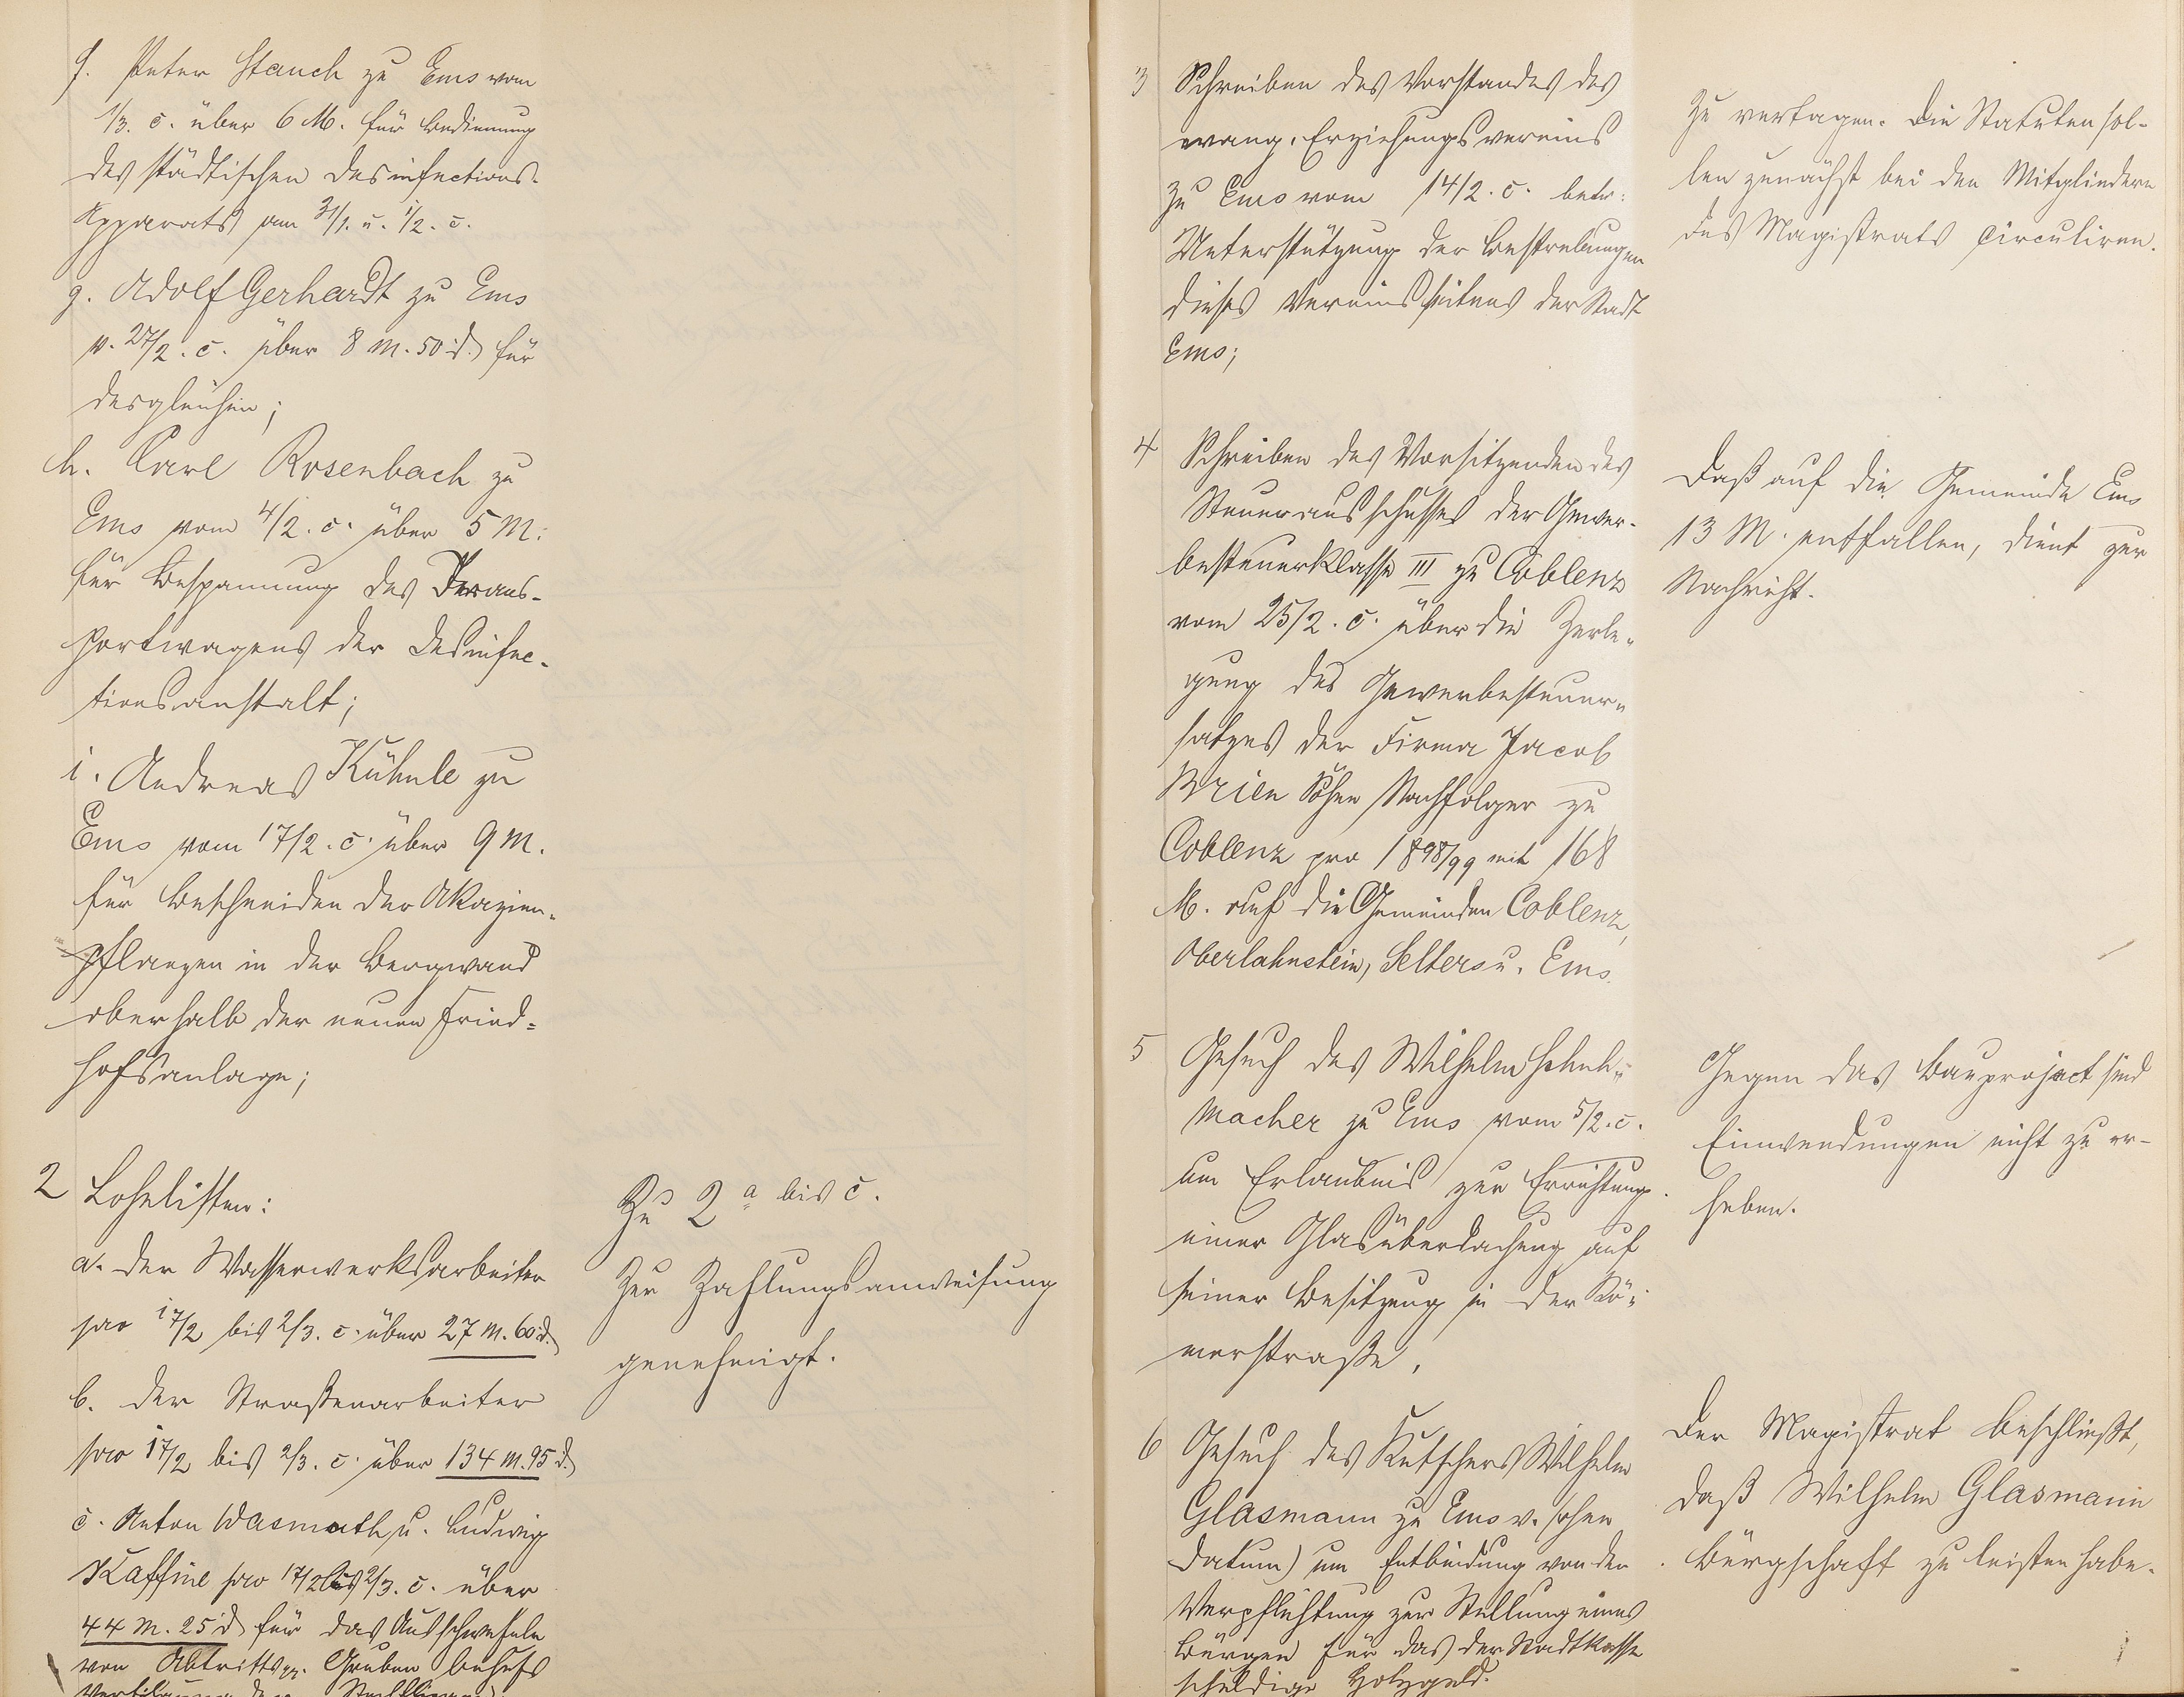 f. Peter Stauch zu Ems vom
1/3. c. über 6 M. für Bedienung
des städtischen Desinfections-
Apparats am 31/1. u. 1/2. c.
g. Adolf Gerhardt zu Ems
v. 27/2. c. über 8 M. 50 d. für
desgleichen;
h. Carl Rosenbach zu
Ems vom 4/2. c. über 5 M.
für Bespannung des Trans-
portwagens der Desinfec-
tionsanstalt;
i. Andreas Kühnle zu
Ems vom 17/2. c. über 9 M.
für Beschneiden der Akazien-
pflanzen in der Bergwand
oberhalb der neuen Fried-
hofsanlage;
2 Lohnlisten:
a. der Wasserwerksarbeiter
pro 17/2 bis 2/3. c. über 27 M. 60 d.
b. der Straßenarbeiter
pro 17/2 bis 2/3. c. über 134 M. 95 d.
c. Anton Wasmuth u. Ludwig
Kaffine pro 17/2 bis 2/3. c. über
44 M. 25 d für das Ausschwefeln
von Abtritts pp. Gruben behufs
Vertilgung der
Zu 2 a bis c.
Zur Zahlungsanweisung
genehmigt.
3 Schreiben des Vorstandes des
evang. Erziehungsvereins
zu Ems vom 14/2. c. betr.
Unterstützung der Bestrebungen
dieses Vereins seitens der Stadt
Ems;
Zu vertagen. Die Statuten sol-
len zunächst bei den Mitgliedern
des Magistrats circuliren.
4 Schreiben des Vorsitzenden des
Steuerausschusses der Gewer-
besteuerklasse III zu Coblenz
vom 25/2. c. über die Zerle-
gung des Gewerbesteuer-
satzes der Firma Jacob
Brien Söhne Nachfolger zu
Coblenz pro 1898/99 mit 168
M. auf die Gemeinden Coblenz,
Oberlahnstein, Selters u. Ems.
Daß auf die Gemeinde Ems
13 M. entfallen, dient zur
Nachricht.
5 Gesuch des Wilhelm Schuh-
macher zu Ems vom 5/2. c.
um Erlaubnis zur Errichtung
einer Glasüberdachung auf
seiner Besitzung in der Rö-
merstraße,
Gegen das Bauproject sind
Einwendungen nicht zu er-
heben.
6 Gesuch des Kutschers Wilhelm
Glasmann zu Ems v. (ohne
Datum) um Entbindung von der
Verpflichtung zur Stellung eines
Bürgen für das der Stadtkasse
schuldige Holzgeld.
Der Magistrat beschließt,
daß Wilhelm Glasmann
Bürgschaft zu leisten habe.